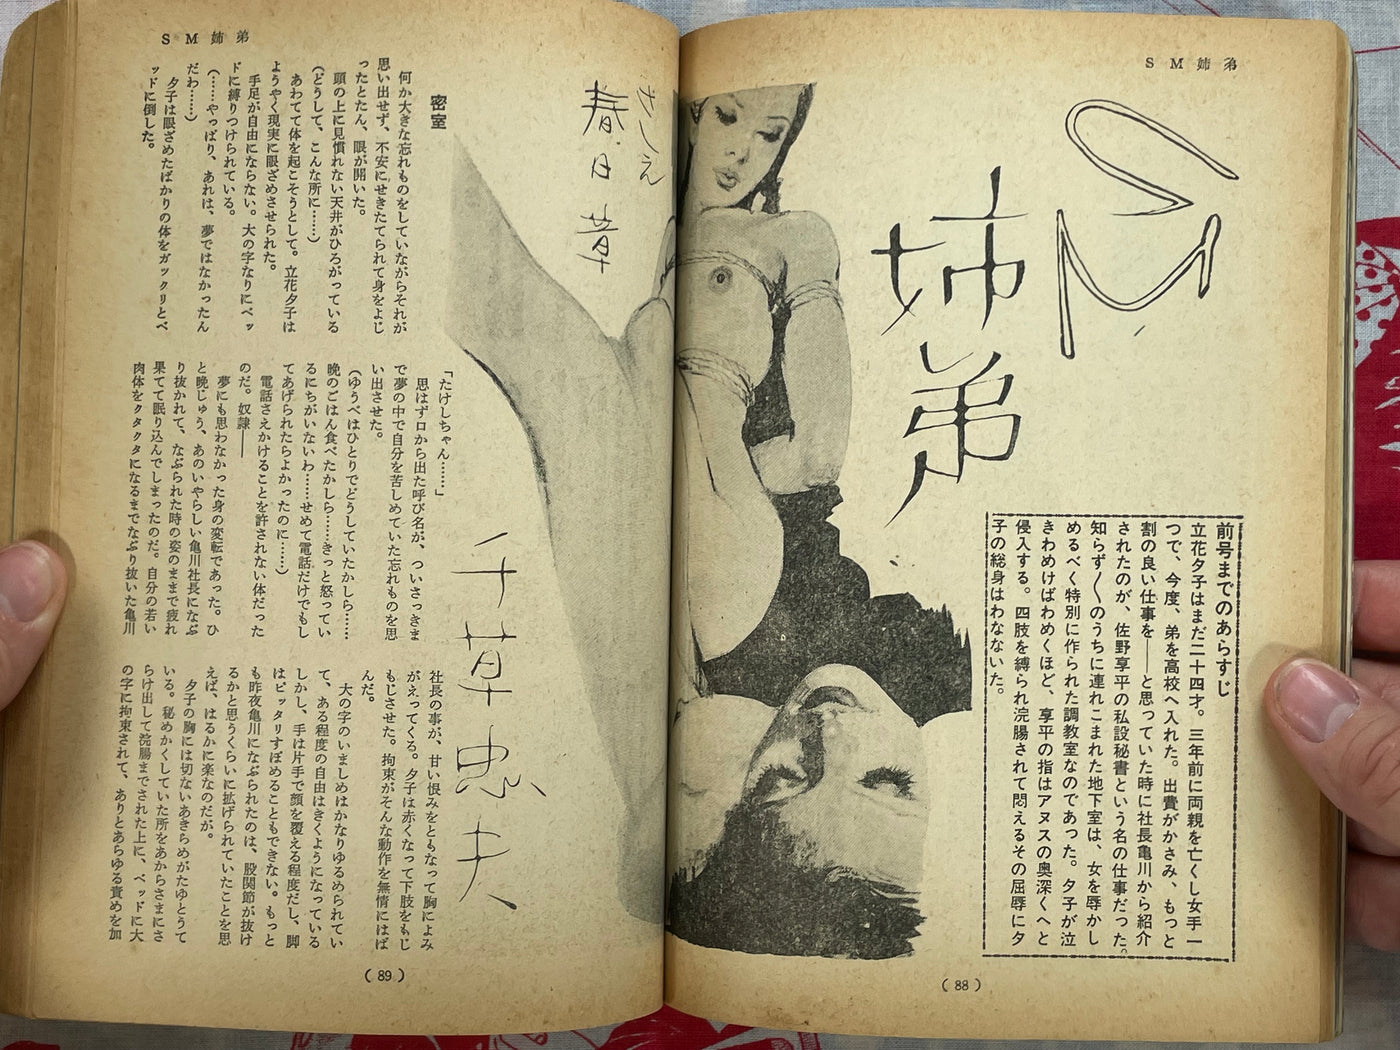 SM姉弟
SM
姉弟
前号までのあらすじ
立花夕子はまだ二十四才。三年前に両親を亡くし女手一
つで、今度、弟を高校へ入れた。出費がかさみ、もっと
割の良い仕事を——と思っていた時に社長亀川から紹介
されたのが、佐野享平の私設秘書という名の仕事だった。
知らず〱のうちに連れこまれた地下室は、女を辱かし
めるべく特別に作られた調教室なのであった。夕子が泣
きわめけばわめくほど、享平の指はアヌスの奥深くへと
侵入する。四肢を縛られ浣腸されて悶えるその屈辱に夕
子の総身はわなないた。
(88)
SM姉弟
さしえ
春日章
千草忠夫
密室
何か大きな忘れものをしていながらそれが
思い出せず、不安にせきたてられて身をよじ
ったとたん、眼が開いた。
頭の上に見慣れない天井がひろがっている
(どうして、こんな所に……)
あわてて体を起こそうとして。立花夕子は
ようやく現実に眼ざめさせられた。
手足が自由にならない。大の字なりにベッ
ドに縛りつけられている。
(……やっぱり、あれは、夢ではなかったん
だわ……)
夕子は眼ざめたばかりの体をガックリとベ
ッドに倒した。
「たけしちゃん……」
思はず口から出た呼び名が、ついさっきま
で夢の中で自分を苦しめていた忘れものを思
い出させた。
(ゆうべはひとりでどうしていたかしら……
晩のごはん食べたかしら……きっと怒ってい
るにちがいないわ……せめて電話だけでもし
てあげられたらよかったのに……)
電話さえかけることを許されない体だった
のだ。奴隷——
夢にも思わなかった身の変転であった。ひ
と晩じゅう、あのいやらしい亀川社長になぶ
り抜かれて、なぶられた時の姿のままで疲れ
果てて眠り込んでしまったのだ。自分の若い
肉体をクタクタになるまでなぶり抜いた亀川
社長の事が、甘い恨みをともなって胸によみ
がえってくる。夕子は赤くなって下肢をもじ
もじさせた。拘束がそんな動作を無情にはば
んだ。
大の字のいましめはかなりゆるめられてい
て、ある程度の自由はきくようになっている
しかし、手は片手で顔を覆える程度だし、脚
はピッタリすぼめることもできない。もっと
も昨夜亀川になぶられたのは、股関節が抜け
るかと思うくらいに拡げられていたことを思
えば、はるかに楽なのだが。
夕子の胸には切ないあきらめがたゆとうて
いる。秘めかくしていた所をあからさまにさ
らけ出して浣腸までされた上に、ベッドに大
の字に拘束されて、ありとあらゆる責めを加
(89)